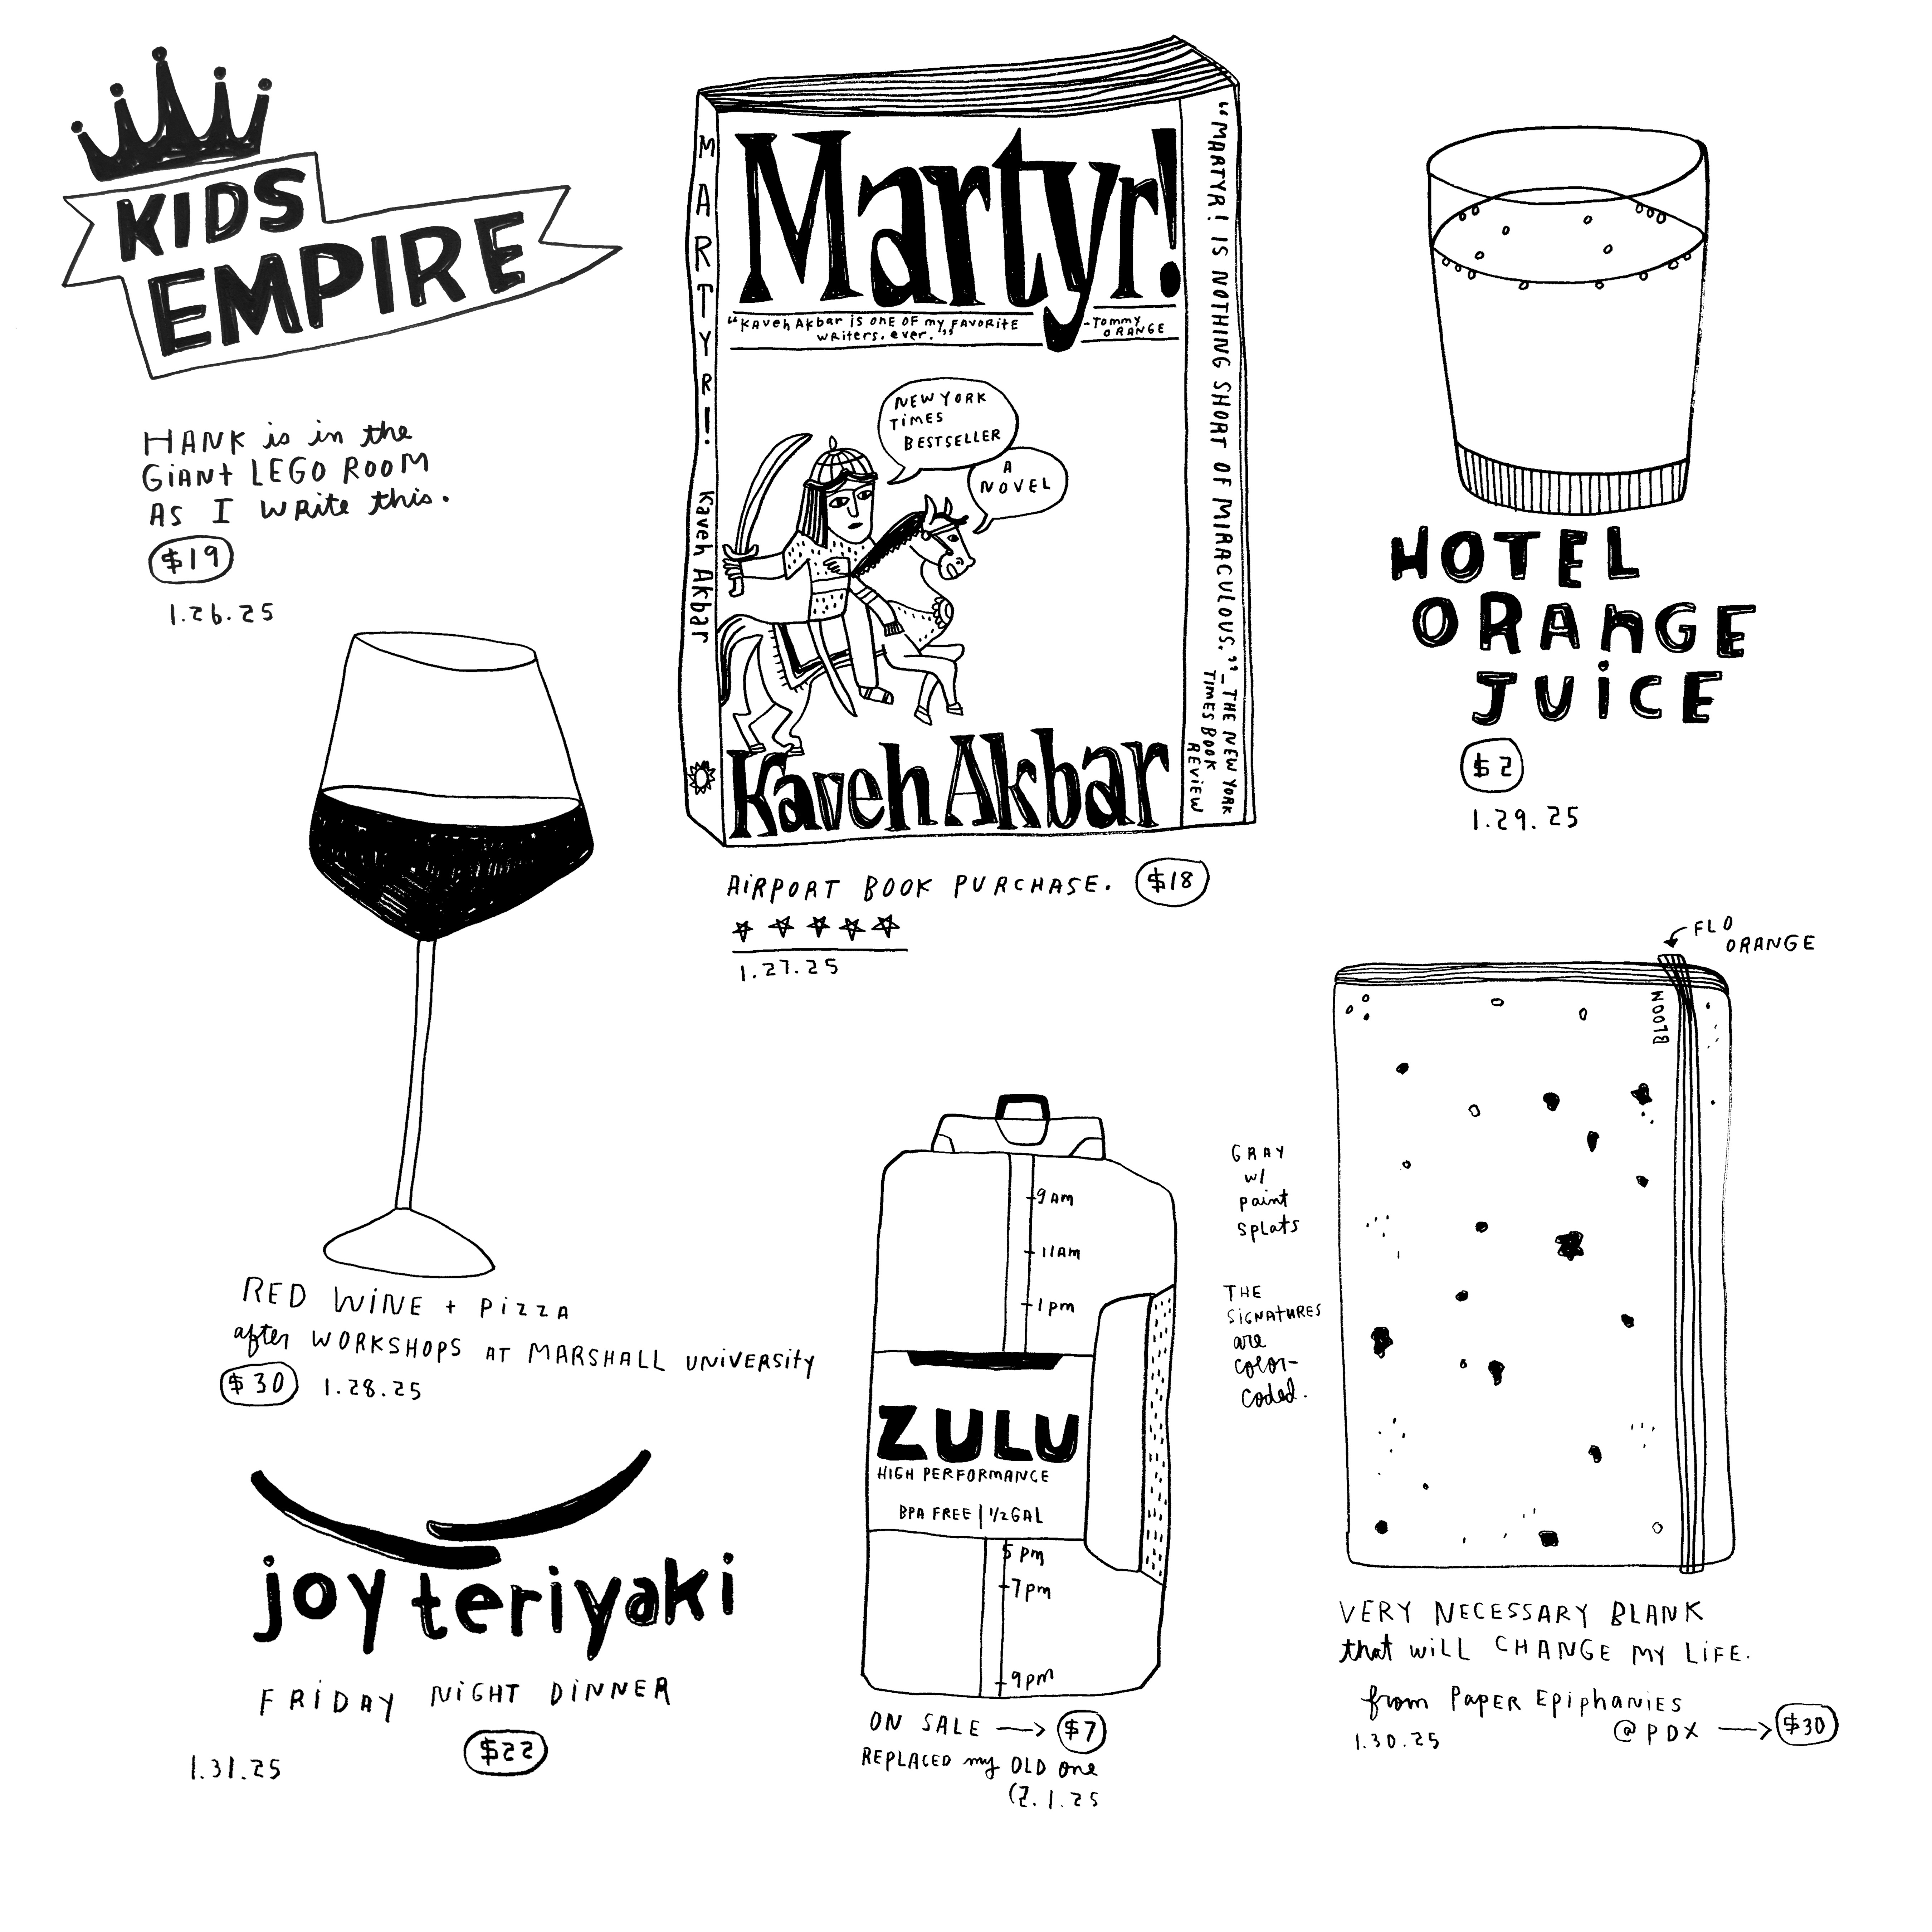 KIDS
EMPIRE
HANK is in the
GIANT LEGO ROOM
AS I WRITE this.
$19
1.26.25
MARTYR! Kaveh Akbar
Martyr!
"Kaveh Akbar is one of my favorite
writers. ever."
-Tommy
ORANGE
NEW YORK
TIMES
BESTSELLER
A
NOVEL
Kaveh Akbar
"MARTYR! IS NOTHING SHORT OF MIRACULOUS." — THE NEW YORK
TIMES BOOK
REVIEW
AIRPORT BOOK PURCHASE. $18
1.27.25
HOTEL
ORANGE
JUICE
$2
1.29.25
RED WINE + PIZZA
after WORKSHOPS AT MARSHALL UNIVERSITY
$30 1.28.25
joy teriyaki
FRIDAY NIGHT DINNER
$22
1.31.25
9AM
11AM
1pm
ZULU
HIGH PERFORMANCE
BPA FREE | 1/2 GAL
5pm
7pm
9pm
ON SALE → $7
REPLACED my OLD one
(2.1.25
FLO
ORANGE
BLOOM
GRAY
w/
paint
splats
THE
SIGNATURES
are
color-
coded.
VERY NECESSARY BLANK
that will CHANGE MY LIFE.
from PAPER EPIPHANIES
@PDX → $30
1.30.25